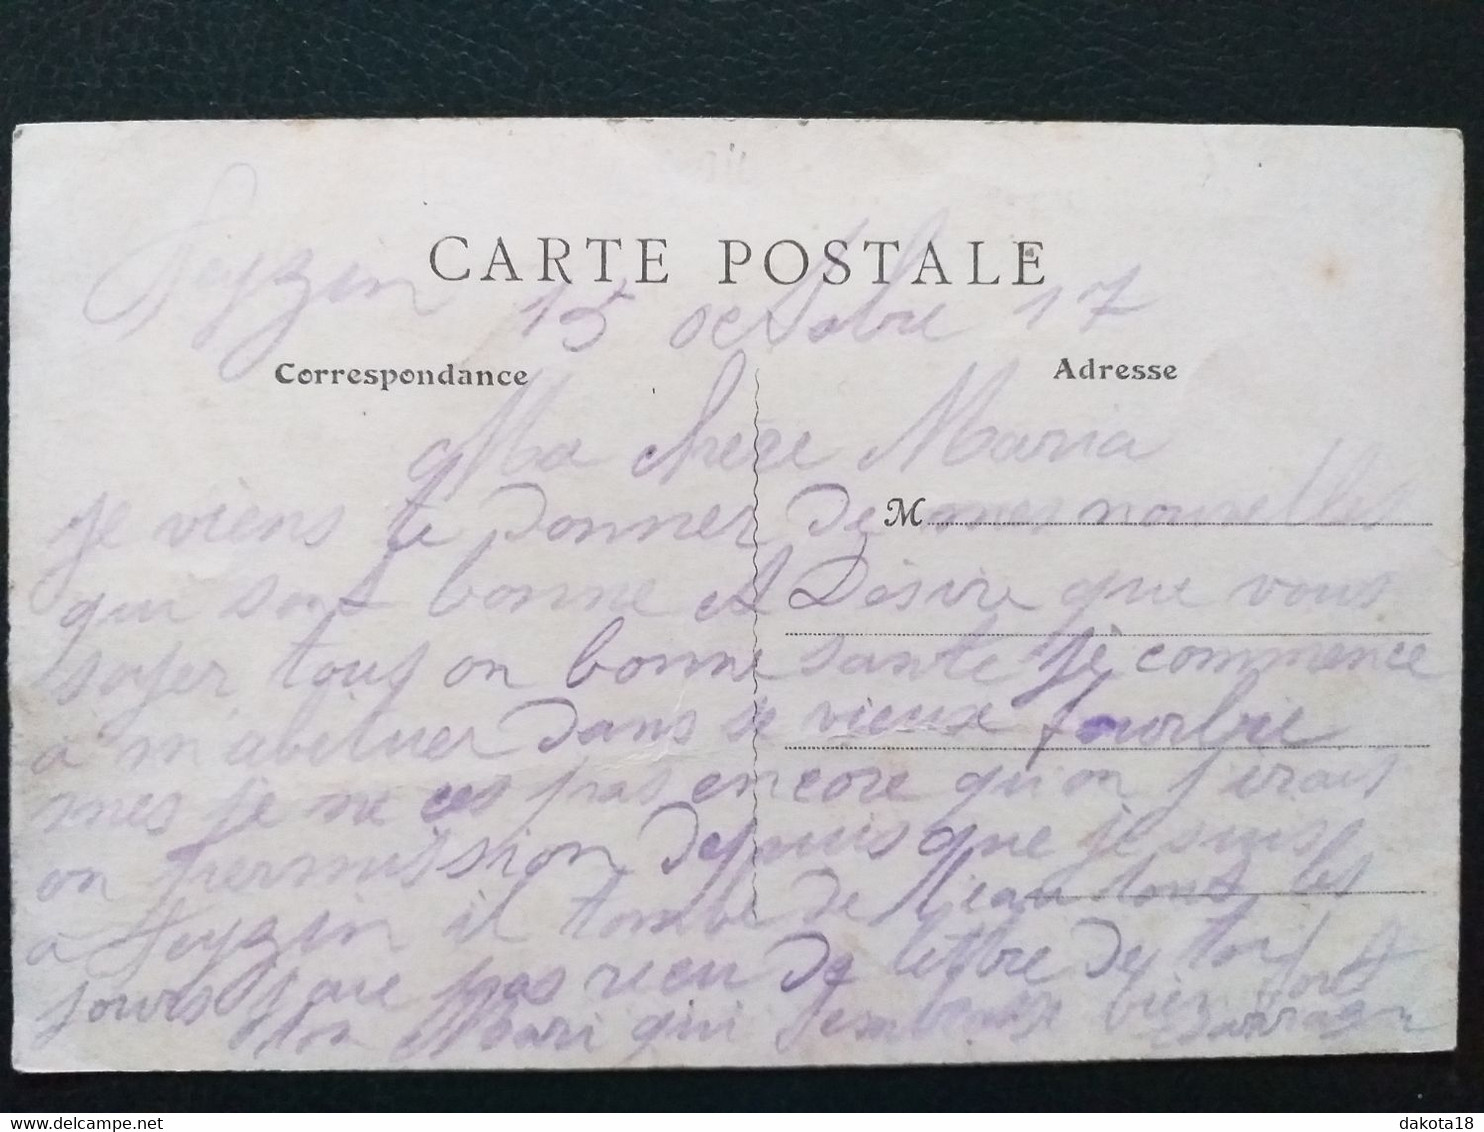 CARTE POSTALE
Feyzin 15 octobre 17
Correspondance
Adresse
Ma chere Maria
M
je viens te donner de mes nouvelles
qui sont bonne et Désire que vous
soyer tous on bonne sante je commence
a m abituer dans se vieux fourbie
mes je ne ces pas encore qu on j irais
on permission depuis que je suis
a Feyzin il tombe de l'eau tout les
jours j ai pas recu de lettre de toi
ton Mari qui t'embrasse bien fort
dakota18